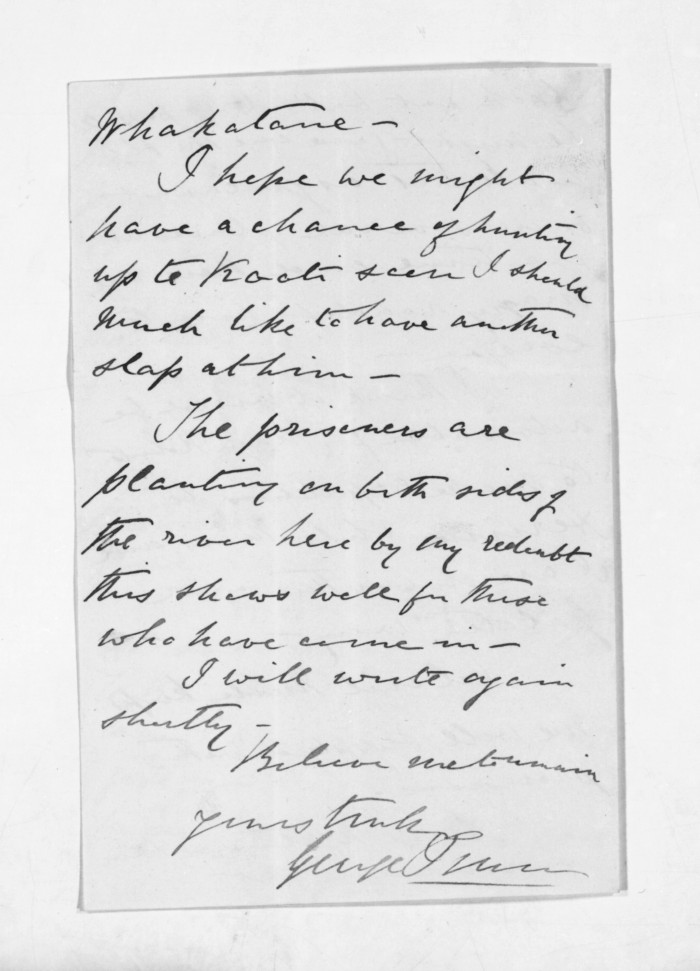 Whakatane –
I hope we might
have a chance of hunting
up te Kooti soon I should
much like to have another
slap at him –
The prisoners are
planting on both sides of
the river here by my redoubt
this shews well for those
who have come in –
I will write again
shortly –
Believe me to remain
yours truly
George